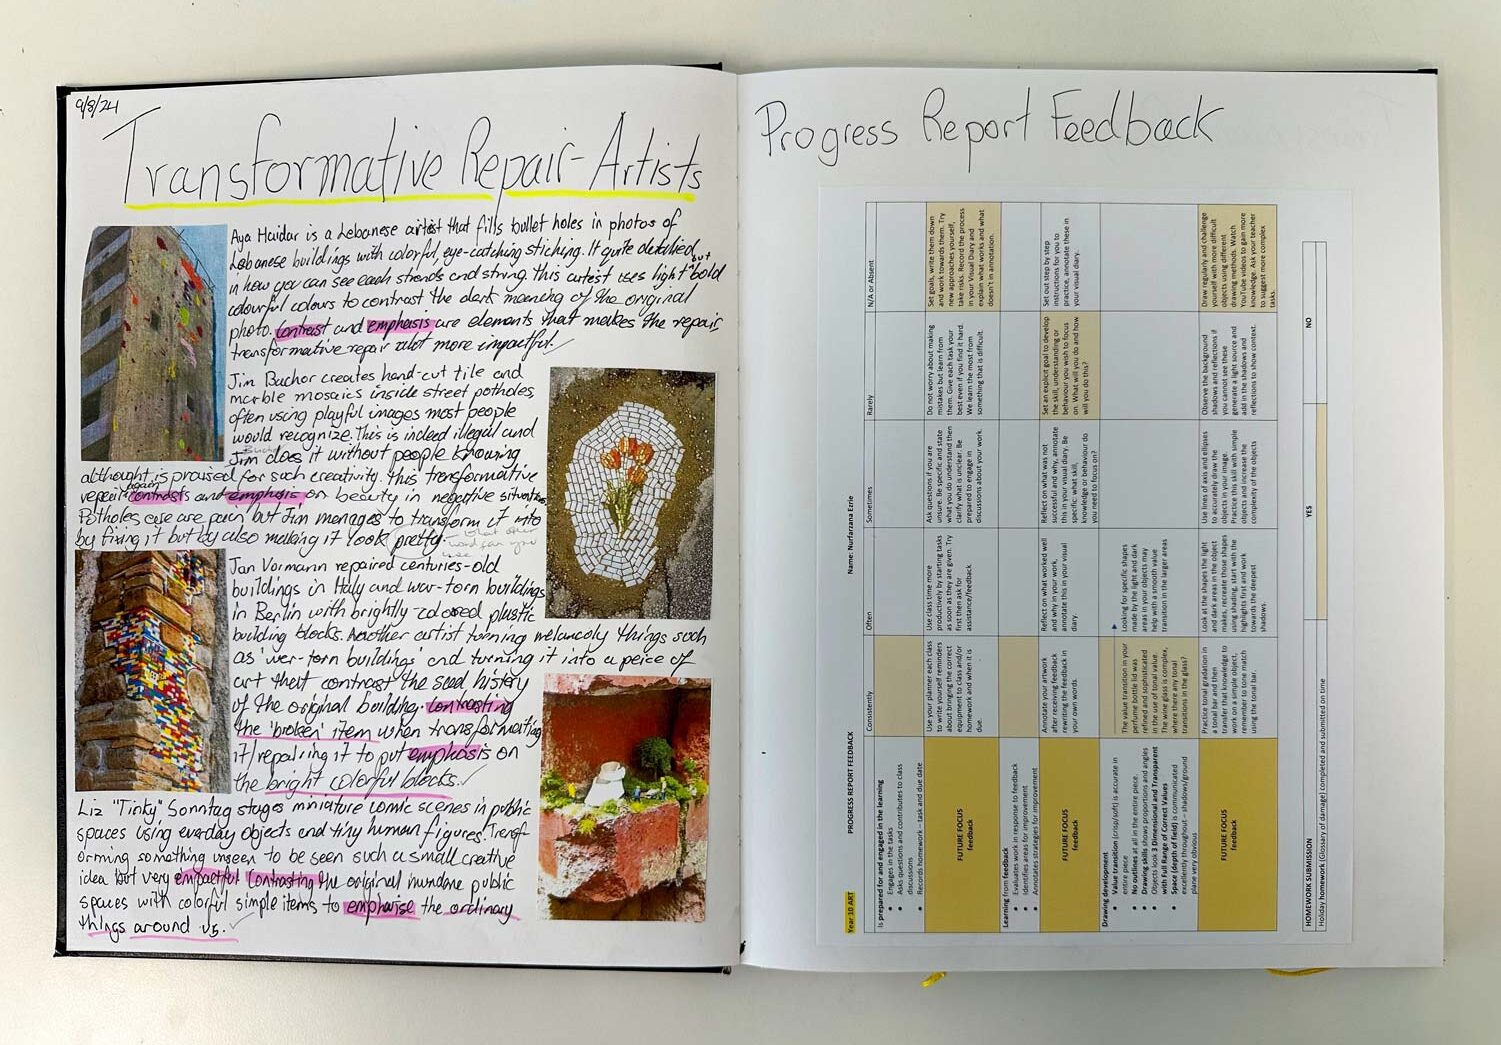 9/8/24
Transformative Repair-Artists
Aya Haidar is a Lebanese artist that fills bullet holes in photos of
Lebanese buildings with colorful, eye-catching stiching. It quite detailed, but
in how you can see each strands and string. this artest uses light bold
colourful colours to contrast the dark meaning of the original
photo. Contrast and emphasis are elements that makes the repair
transformative repair alot more impactful.
Jim Bachor creates hand-cut tile and
marble mosaics inside street potholes,
often using playful images most people
would recognize. This is indeed illegal and
Jim does it without people knowing
althought is praised for such creativity. this transformative
repair again contrasts and emphasis on beauty in negative situation
Potholes are pain but Jim manages to transform it into
by fixing it but by also making it look pretty.
Jan Vormann repaired centuries-old
buildings in Italy and war-torn buildings
in Berlin with brightly colored plastic
building blocks. Another artist turning melancoly things such
as 'war-torn buildings' and turning it into a peice of
art that contrast the sead history
of the original building. Contrasting
the 'broken' item when transformating
it/repairing it to put emphasis on
the bright colorful blocks.
Liz "Tinky" Sonntag stages miniature comic scenes in public
spaces using everday objects and tiny human figures. Transf
orming something unseen to be seen such a small creative
idea but very empactful Contrasting the original mundane public
spaces with colorful simple items to emphasise the ordinary
things around us.
Progress Report Feedback
Year 10 ART PROGRESS REPORT FEEDBACK Name: Nurfarzana Erie
Consistently Often Sometimes Rarely N/A or Absent
Is prepared for and engaged in the learning
• Engages in the tasks
• Asks questions and contributes to class
discussions
• Records homework – task and due date
FUTURE FOCUS
feedback
Use your planner each class
to write yourself reminders
about bringing the correct
equipment to class and/or
homework and when it is
due.
Use class time more
productively by starting tasks
as soon as they are given. Try
first then ask for
assistance/feedback
Ask questions if you are
unsure. Be specific and state
what you do understand then
clarify what is unclear. Be
prepared to engage in
discussions about your work.
Do not worry about making
mistakes but learn from
them. Give each task your
best even if you find it hard.
We learn the most from
something that is difficult.
Set goals, write them down
and work towards them. Try
new approaches yourself,
take risks. Record the process
in your Visual Diary and
explain what works and what
doesn't in annotation.
Learning from feedback
• Evaluates work in response to feedback
• Identifies areas for improvement
• Annotates strategies for improvement
FUTURE FOCUS
feedback
Annotate your artwork
after receiving feedback
rewriting the feedback in
your own words.
Reflect on what worked well
and why in your work,
annotate this in your visual
diary
Reflect on what was not
successful and why, annotate
this in your visual diary. Be
specific: what skill,
knowledge or behaviour do
you need to focus on?
Set an explicit goal to develop
the skill, understanding or
behaviour you wish to focus
on. What will you do and how
will you do this?
Set out step by step
instructions for you to
practice, annotate these in
your visual diary.
Drawing development
• Value transition (crisp/soft) is accurate in
entire piece
• No outlines at all in the entire piece.
• Drawing skills shows proportions and angles
• Objects look 3 Dimensional and Transparent
with Full Range of Correct Values
• Space (depth of field) is communicated
excellently throughout – shadows/ground
plane very obvious
The value transition in your
perfume bottle lid was
refined and sophisticated
in the use of tonal value.
The wine glass is complex,
where there any tonal
transitions in the glass?
Looking for specific shapes
made by the light and dark
areas in your objects may
help with a smooth value
transition in the larger areas
FUTURE FOCUS
feedback
Practice tonal gradation in
a tonal bar and then
transfer that knowledge to
work on a simple object,
remember to tone match
using the tonal bar.
Look at the shapes the light
and dark area in the object
makes, recreate those shapes
using shading, start with the
highlights first and work
towards the deepest
shadows.
Use lines of axis and ellipses
to accurately draw the
objects in your image.
Practice this skill with simple
objects and increase the
complexity of the objects
Observe the background
shadows and reflections if
you cannot see these
generate a light source and
add in the shadows and
reflections to show context.
Draw regularly and challenge
yourself with more difficult
objects using different
drawing methods. Watch
YouTube videos to gain more
knowledge. Ask your teacher
to suggest more complex
tasks.
HOMEWORK SUBMISSION YES NO
Holiday homework (Glossary of damage) completed and submitted on time